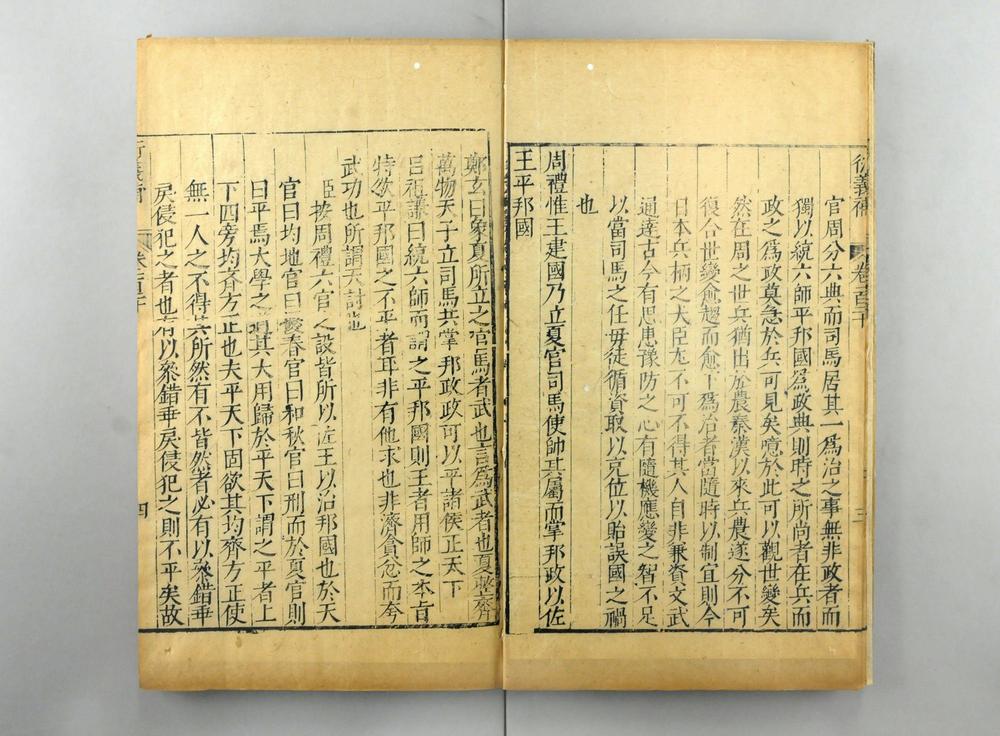 衍義補 卷百二十 三
官周分六典而司馬居其一爲治之事無非政者而
獨以統六師平邦國爲政典則時之所尚者在兵而
政之爲政莫急於兵可見矣噫於此可以觀世變矣
然在周之世兵猶出於農秦漢以來兵農遂分不可
復合世變愈趨而愈下爲治者當隨時以制宜則今
日本兵柄之大臣尤不可不得其人自非兼資文武
通達古今有思患豫防之心有隨機應變之智不足
以當司馬之任毋徒循資取以充位以貽誤國之禍
也
周禮惟王建國乃立夏官司馬使帥其屬而掌邦政以佐
王平邦國
鄭玄曰象夏所立之官馬者武也言爲武者也夏整齊
萬物天子立司馬共掌邦政政可以平諸侯正天下
呂祖謙曰統六師而謂之平邦國則王者用師之本旨
特欲平邦國之不平者耳非有他求也非濟貪忿而夸
武功也所謂天討也
臣按周禮六官之設皆所以佐王以治邦國也於天
官曰均地官曰擾春官曰和秋官曰刑而於夏官則
曰平焉大學之道其大用歸於平天下謂之平者上
下四旁均齊方正也夫平天下固欲其均齊方正使
無一人之不得其所然有不皆然者必有以參錯乖
戾侵犯之者也有以參錯乖戾侵犯之則不平矣故
四